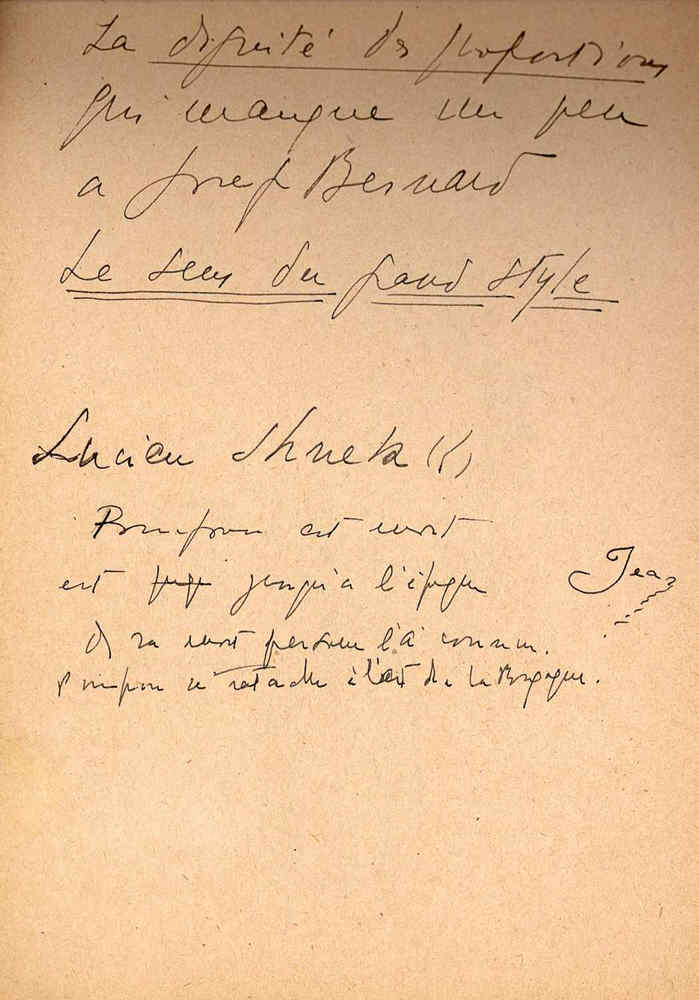 La dignité des proportions
qui manque un peu
a Josef Bernard
Le sens du grand style
Lucien Schnek
Pompon est mort
est jusqu'a l'époque
Jean
de sa mort personne l'a connu.
Pompon se ratache à l'art de la Bourgogne.